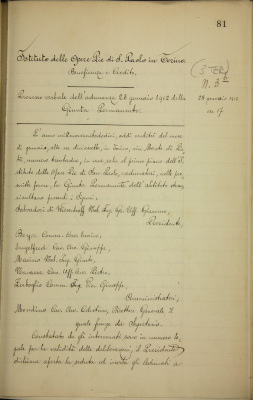 81
Istituto delle Opere Pie di S. Paolo in Torino
Beneficenza e Credito
Processo verbale dell'adunanza 28 gennaio 1912 della
Giunta Permanente.
N. 3
28 gennaio 1912
ore 17
L'anno millenovecentododici, addì ventotto del mese
di gennaio, alle ore diciassette, in Torino, via Monte di Pie
tà, numero trentadue, in una sala al primo piano dell'I
stituto delle Opere Pie di San Paolo, radunatasi, nelle pre
scritte forme, la Giunta Permanente dell'Istituto stesso,
risultano presenti i Signori:
Presidente,
Comm. Avv.
Cav. Avv. Giuseppe,
Ing.
Cav. Uff. Avv. Pietro,
Comm. Ing. Giuseppe,
Amministratori,
Cav. Avv. Celestino, Direttore Generale
quale funge da Segretario.
Constatato che gli intervenuti sono in numero le
gale per la validità delle deliberazioni, il Presidente
dichiara aperta la seduta ed invita gli adunati a